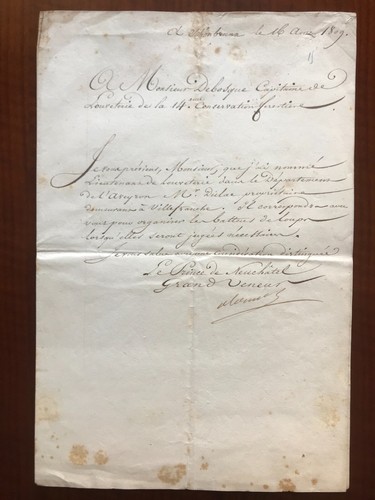 le 16 Aout 1809.
A Monsieur Debosque Capitaine de
Louveterie de la 14eme Conservation forestiere
Je vous préviens, Monsieur, que j'ai nommé
Lieutenant de Louveterie dans le Département
de l'Aveyron Mr. propriétaire
demeurant à Villefranche. il correspondra avec
vous pour organiser les battues de loups
lorsqu'elles seront jugées nécessaires.
Je vous salue avec une considération distinguée
Le Prince de Neuchâtel
Grand Veneur